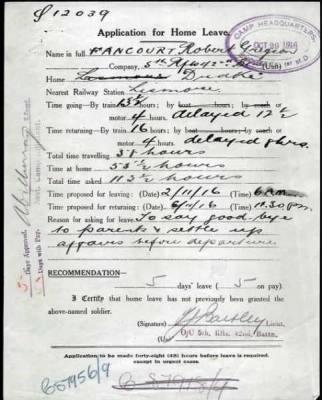 Q12039
Application for Home Leave.
CAMP HEADQUARTERS,
OCT 30 1916
1st M.D.
Name in full FANCOURT Robert
Company, 5th Rfts 42nd Bn (Unit)
Home Lismore Dudke
Nearest Railway Station Lismore
Time going—By train 43½ hours; by boat hours; by coach or
motor 4 hours. delayed 12½
Time returning—By train 16 hours; by boat hours; by coach or
motor 4 hours. delayed hrs.
Total time travelling 58 hours
Time at home 58½ hours
Total time asked 113½ hours
Time proposed for leaving: (Date) 2/11/16 (Time) 6 P.m.
Time proposed for returning: (Date) 6/11/16 (Time) 11.30 pm.
Reason for asking for leave: To say good bye
to parents & settle up
affairs before departure
RECOMMENDATION—
5 days' leave ( 5 on pay).
I Certify that home leave has not previously been granted the
above-named soldier.
(Signature) Lieut.
O/C 5th. Rfts. 42nd. Battn.
Application to be made forty-eight (48) hours before leave is required,
except in urgent cases.
5 Days Approved.
5 Days with Pay.